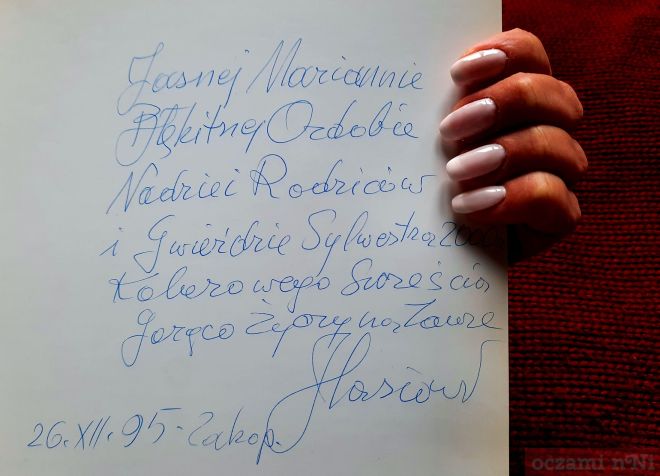 Jasnej Mariannie
Błękitnej Ozdobie
Nadziei Rodziców
i Gwieździe Sylwestra 2000
Kolorowego Szczęścia
Gorąco Życzy na Zawsze
26.XII.95. Zakop.
oczami nNi